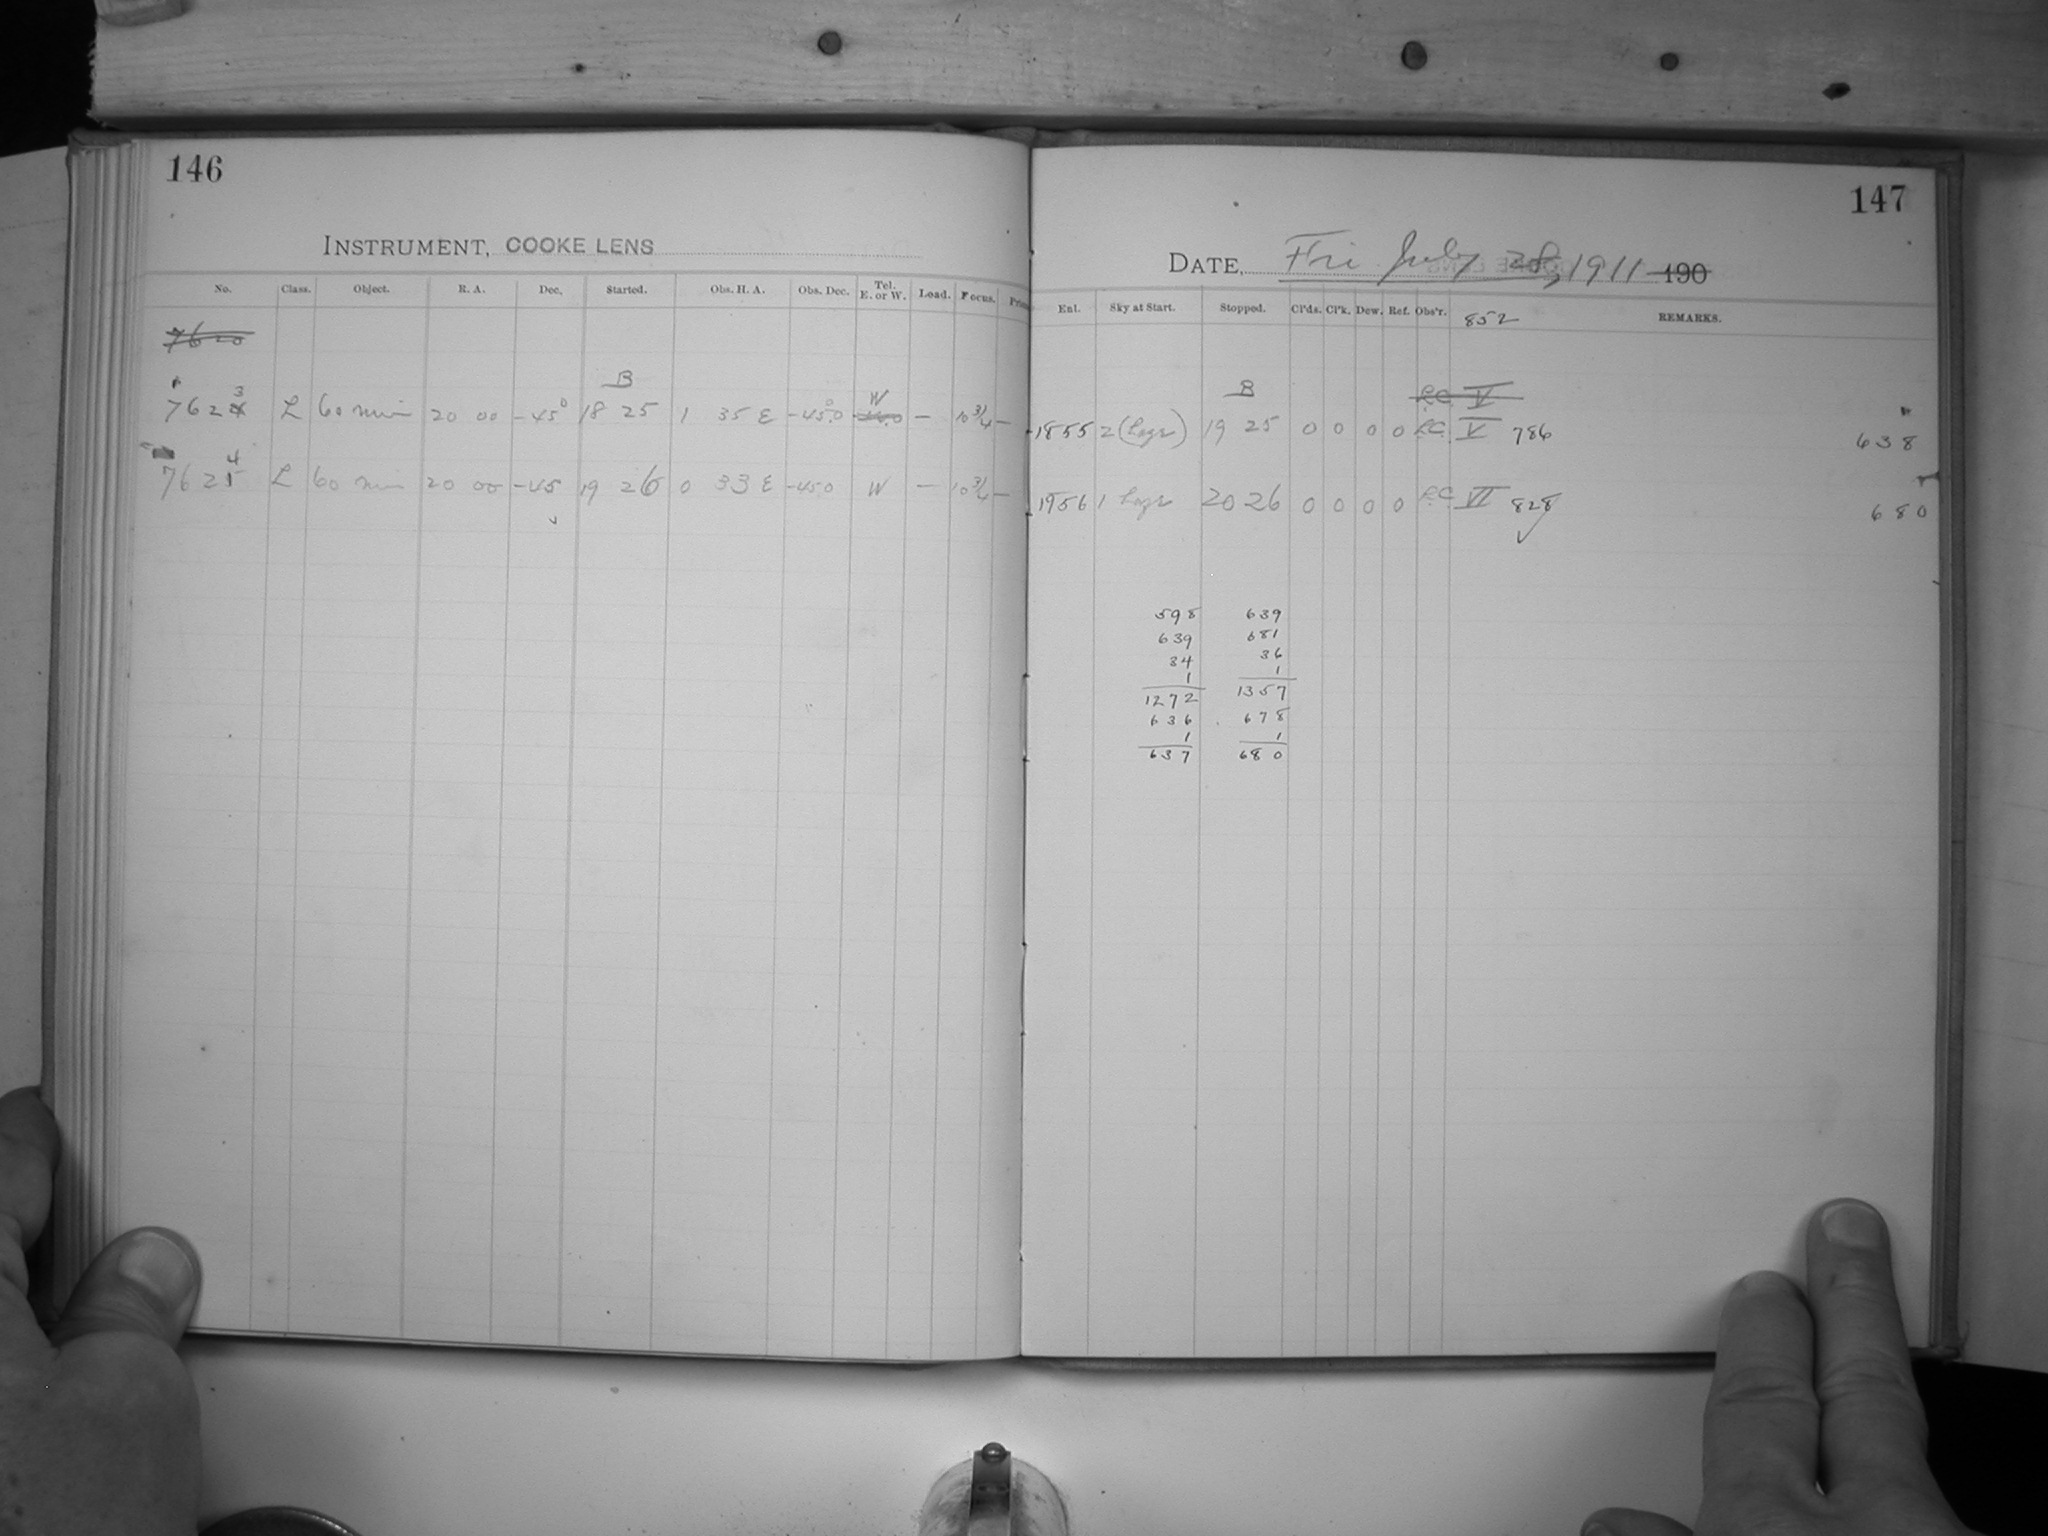 146
INSTRUMENT, COOKE LENS
No. Class. Object. R. A. Dec. Started. Obs. H. A. Obs. Dec. Tel. E. or W. Load. Focus.
7620
B
7623 L 60 min 20 00 -45° 18 25 1 35 E -45.0 W — 10 3/4 —
7624 L 60 min 20 00 -45 19 26 0 33 E -45.0 W — 10 3/4 —
147
DATE, Fri July 28, 1911 190
Ent. Sky at Start. Stopped. Cl'ds. Cl'k. Dew. Ref. Obs'r. 852 REMARKS.
B V
1855 2 (Hazy) 19 25 0 0 0 0 V 786 638
1956 1 Hazy 20 26 0 0 0 0 VI 828 680
598 639
639 681
34 36
1 1
1272 1357
636 678
1 1
637 680